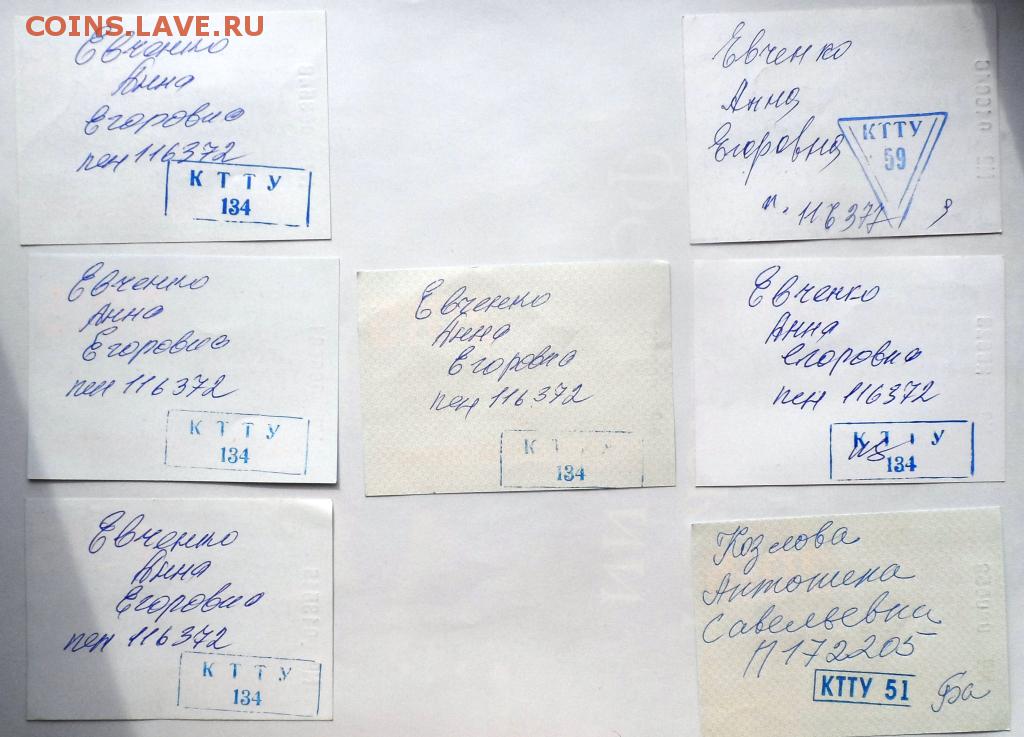 COINS.LAVE.RU
Евченко
Анна
Егоровна
пен 116372
К Т Т У
134
Евченко
Анна
Егоровна
КТТУ
59
п. 11637
Евченко
Анна
Егоровна
пен 116372
К Т Т У
134
Евченко
Анна
Егоровна
пен 116372
К Т Т У
134
Евченко
Анна
Егоровна
пен 116372
К Т Т У
134
Евченко
Анна
Егоровна
пен 116372
К Т Т У
134
Козлова
Антонина
Савельевна
П 172205
КТТУ 51